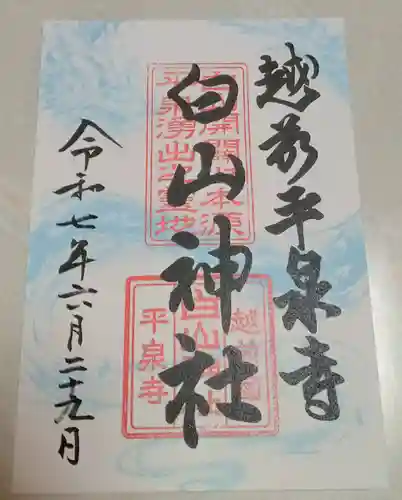 越前平泉寺
白山神社
令和七年六月二十九日
白山開闢本源
平泉湧出之霊地
越前国
白山神社
平泉寺